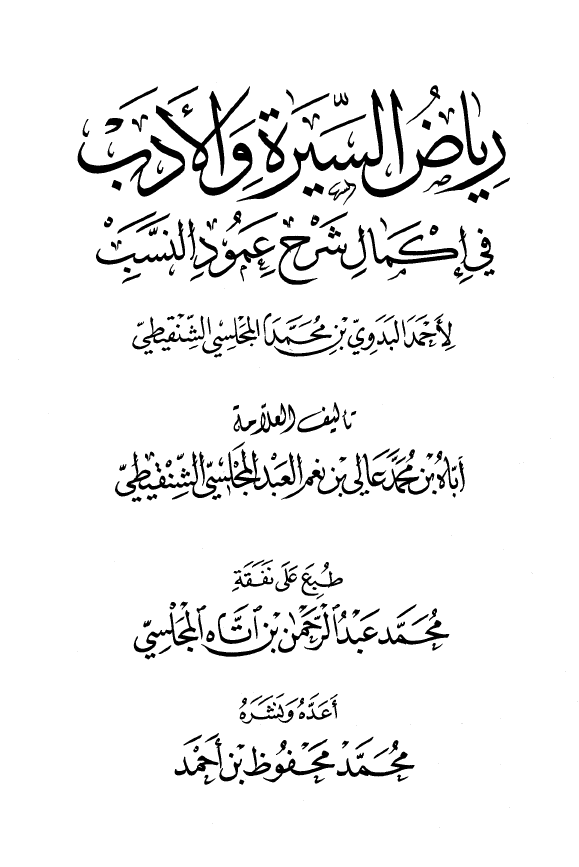 رِيَاضُ السِّيرَةِ وَالأَدَبْ
فِي إِكْمَالِ شَرْحِ عَمُودِ النَّسَبْ
لِأَحْمَدَ البَدَوِيّ بْنِ مُحَمَّدَا المَجْلِسِيّ الشِّنْقِيطِيّ
تأليف العلاّمة
أبَّاهُ بْنِ مُحَمَّدْ عَالِي بْنِ نعم العَبْد المَجْلِسِيّ الشِّنْقِيطِيّ
طُبِعَ عَلَى نَفَقَةِ
مُحَمَّد عَبْدُ الرَّحْمٰن بْن اتَّاه المَجْلِسِيّ
أَعَدَّهُ وَنَشَرَهُ
مُحَمَّدْ مَحْفُوظ بْن أَحْمَدْ